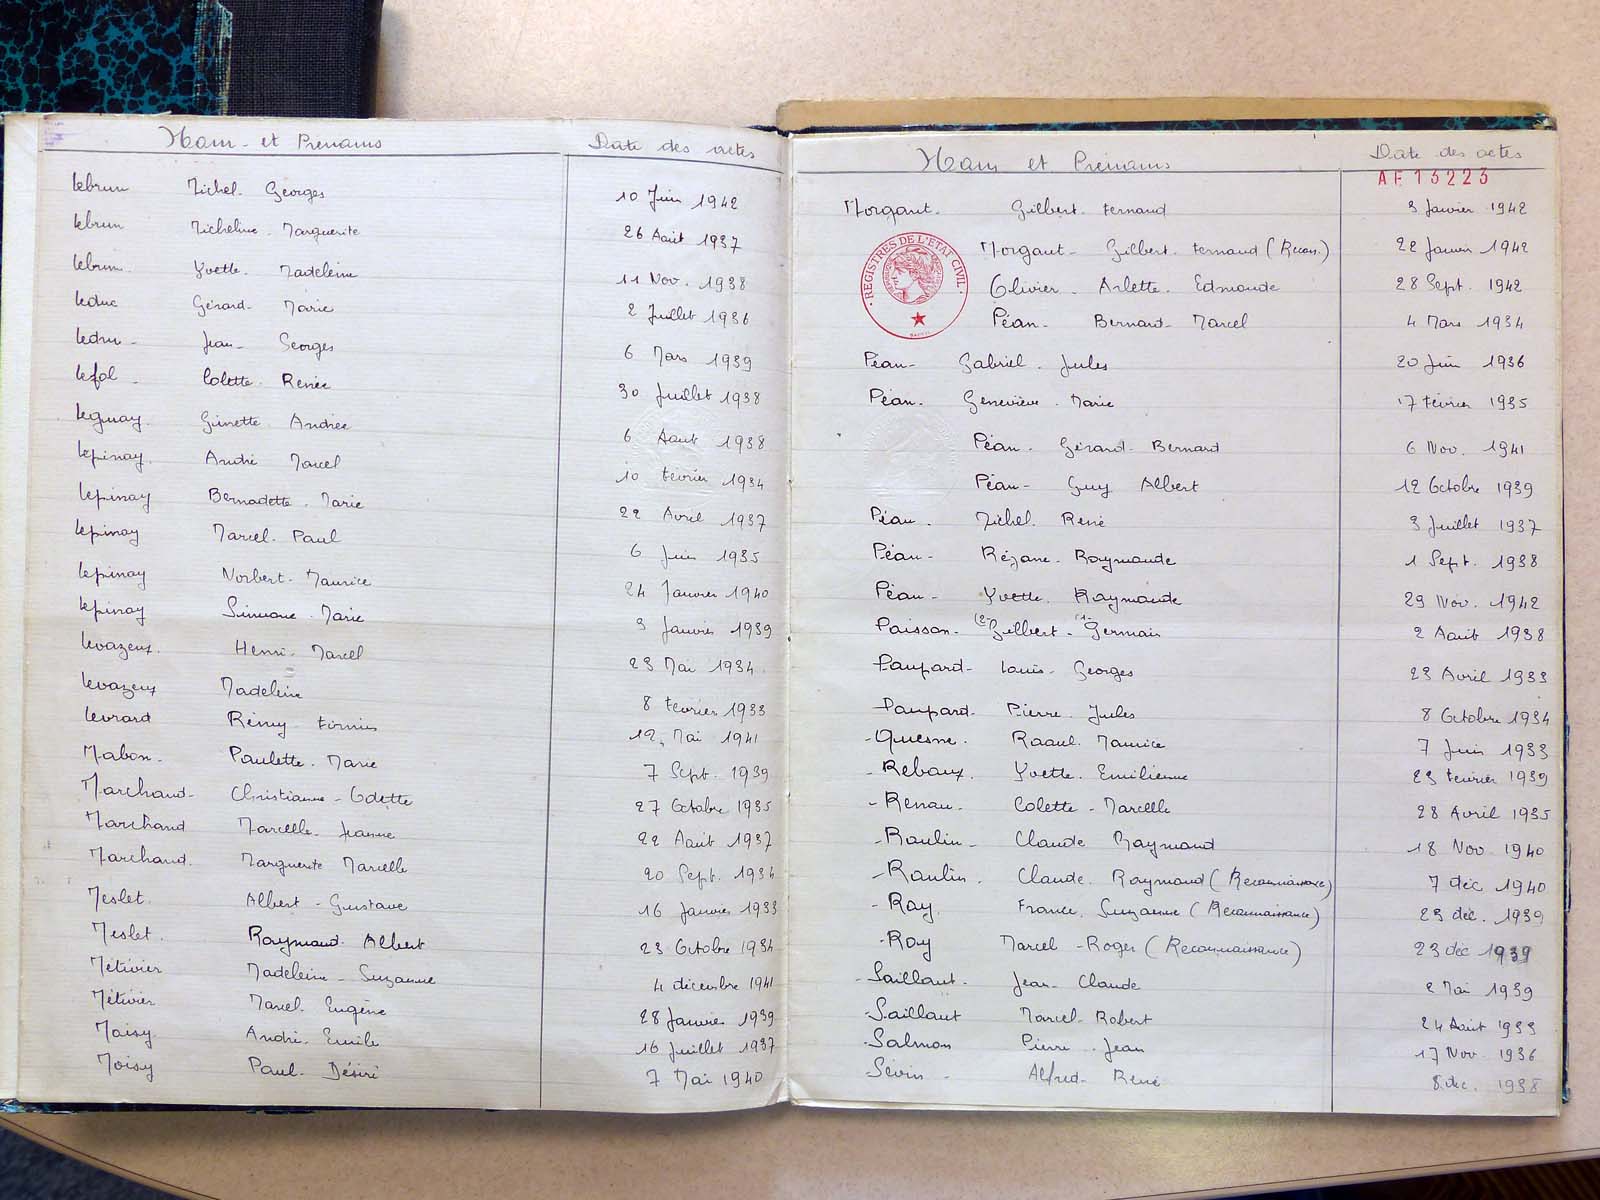 Nom et Prénoms Date des actes
Lebrun Michel Georges 10 Juin 1942
Lebrun Micheline Marguerite 26 Août 1937
Lebrun Yvette Madeleine 11 Nov. 1938
Leduc Gérard Marie 2 Juillet 1936
Leduc Jean Georges 6 Mars 1939
Lefol Colette Renée 30 Juillet 1938
Leguay Ginette Andrée 6 Août 1938
Lépinay André Marcel 10 Février 1934
Lépinay Bernadette Marie 22 Avril 1937
Lépinay Marcel Paul 6 Juin 1935
Lépinay Norbert Maurice 24 Janvier 1940
Lépinay Simone Marie 3 Janvier 1939
Levazeux Henri Marcel 23 Mai 1934
Levazeux Madeleine 8 Février 1933
Levrard Rémy Firmin 12 Mai 1941
Mabon Paulette Marie 7 Sept. 1939
Marchand Christianne Odette 27 Octobre 1935
Marchand Marcelle Jeanne 22 Août 1937
Marchand Marguerite Marcelle 20 Sept. 1934
Meslet Albert Gustave 16 Janvier 1933
Meslet Raymond Albert 23 Octobre 1934
Métivier Madeleine Suzanne 4 décembre 1941
Métivier Marcel Eugène 28 Janvier 1939
Moisy André Emile 16 Juillet 1937
Moisy Paul Désiré 7 Mai 1940
Nom et Prénoms Date des actes
AF 13223
Morgant Gilbert Fernand 3 Janvier 1942
Morgant Gilbert Fernand (Recon.) 22 Janvier 1942
REGISTRES DE L'ETAT CIVIL
Olivier Arlette Edmonde 28 Sept. 1942
Péan Bernard Marcel 4 Mars 1934
Péan Gabriel Jules 20 Juin 1936
Péan Geneviève Marie 17 Février 1935
Péan Gérard Bernard 6 Nov. 1941
Péan Guy Albert 12 Octobre 1939
Péan Michel René 3 Juillet 1937
Péan Réjane Raymonde 1 Sept. 1938
Péan Yvette Raymonde 29 Nov. 1942
Poisson (2- Gilbert (1- Germain 2 Août 1938
Poupard Louis Georges 23 Avril 1933
Poupard Pierre Jules 8 Octobre 1934
- Quesne Raoul Maurice 7 Juin 1933
- Reboux Yvette Emilienne 23 Février 1939
- Renau Colette Marcelle 28 Avril 1935
- Roulin Claude Raymond 18 Nov 1940
- Roulin Claude Raymond (Reconnaissance) 7 déc 1940
- Roy France Suzanne (Reconnaissance) 23 déc. 1939
- Roy Marcel Roger (Reconnaissance) 23 déc 1939
- Saillant Jean Claude 2 Mai 1939
- Saillant Marcel Robert 24 Août 1933
- Salmon Pierre Jean 17 Nov 1936
- Sevin Alfred René 8 déc. 1938